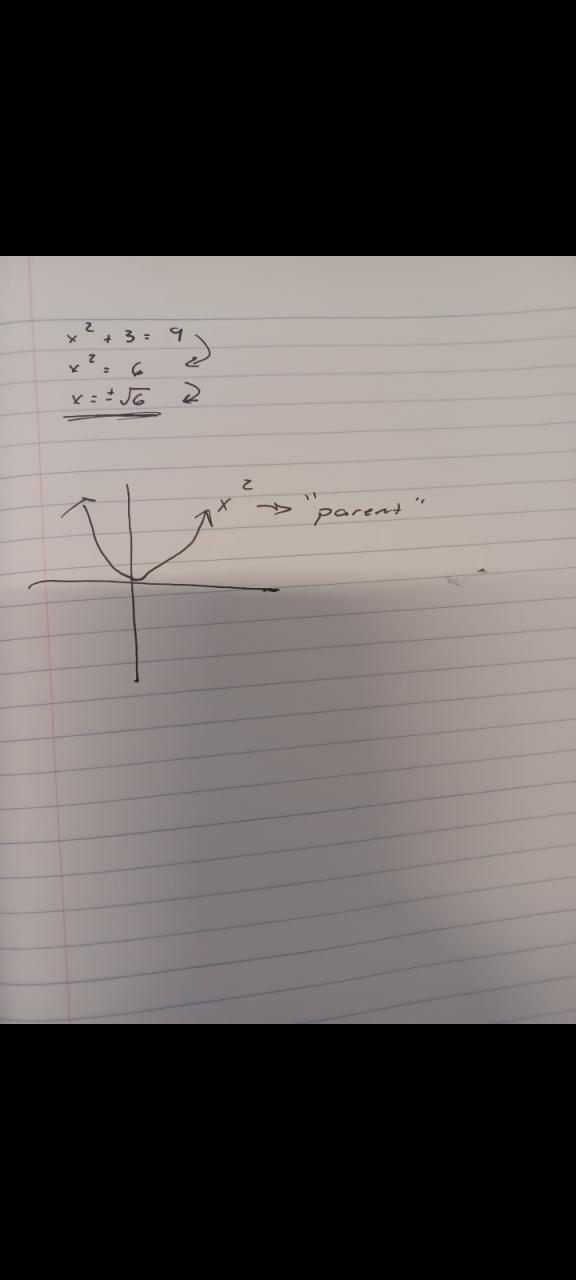 x² + 3 = 9
x² = 6
x = ±√6
x² → "parent"